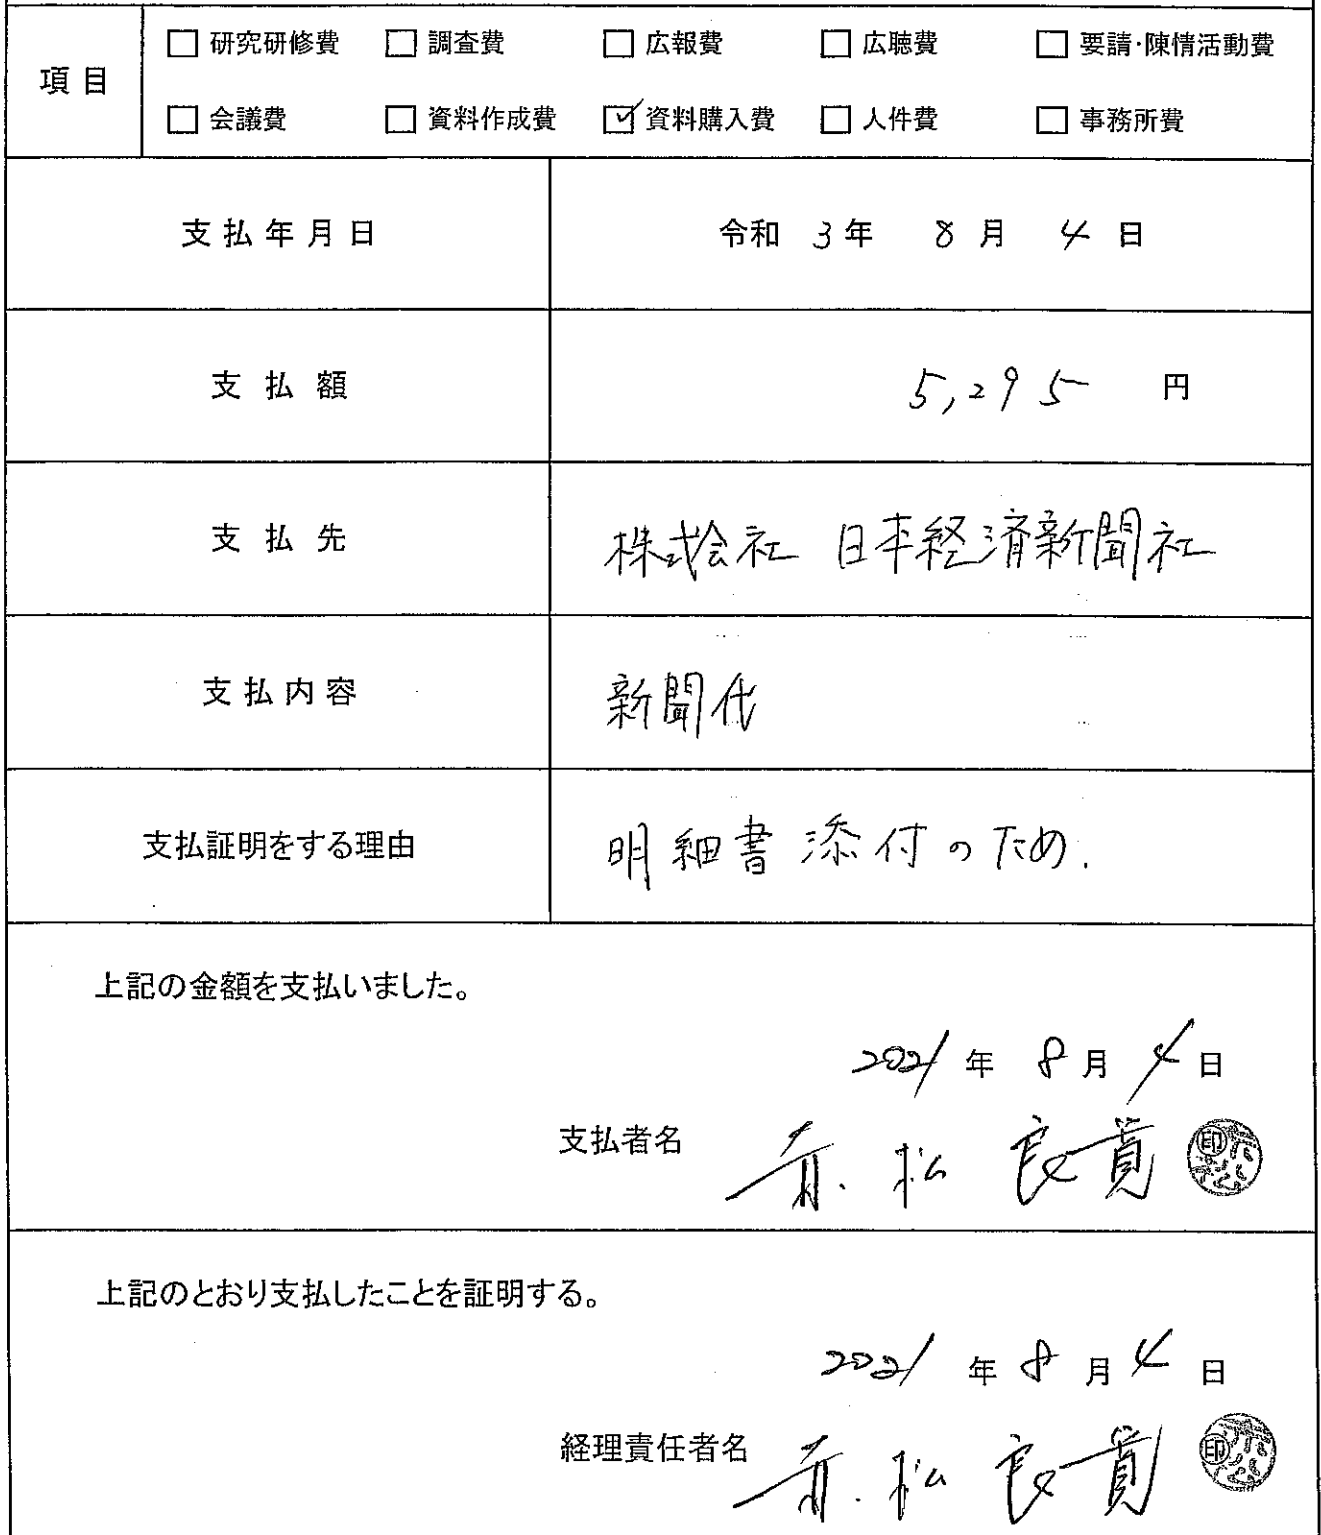 項目
□ 研究研修費 □ 調査費 □ 広報費 □ 広聴費 □ 要請・陳情活動費
□ 会議費 □ 資料作成費 ☑ 資料購入費 □ 人件費 □ 事務所費
支払年月日 令和 3年 8月 4日
支払額 5,295 円
支払先 株式会社 日本経済新聞社
支払内容 新聞代
支払証明をする理由 明細書添付のため.
上記の金額を支払いました。
2021年 8月 4日
支払者名 赤松 良寛 印
上記のとおり支払したことを証明する。
2021年 8月 4日
経理責任者名 赤松 良寛 印